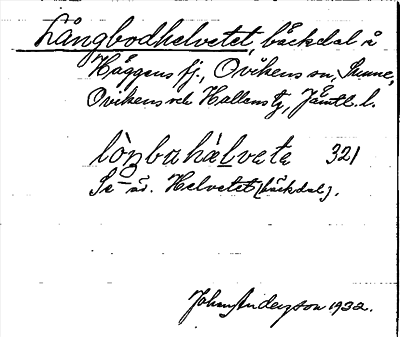 Långbodhelvetet, bäckdal i
Häggens fj., Ovikens sn, Sunne,
Ovikens och Hallens tg, Jämtl. l.
lòŋbuhàlvete 321
Se äv. Helvetet (bäckdal).
Johan Anderzson 1932.